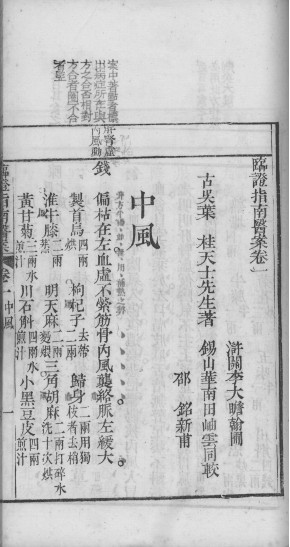 臨證指南醫案卷一
滸關李大瞻翰圃
古吳葉桂天士先生著
錫山華南田岫雲同較
邵銘新甫
中風
錢
偏枯在左血虛不縈筋骨內風襲絡脈左緩大
製首烏四兩烘
枸杞子去蒂二兩
歸身二兩用獨枝者去梢
淮牛膝二兩蒸
明天麻二兩麵煨
三角胡麻二兩打碎水洗十次烘
黃甘菊三兩水煎汁
川石斛四兩水煎汁
小黑豆皮四兩煎汁
臨證指南醫案
卷一
中風
一